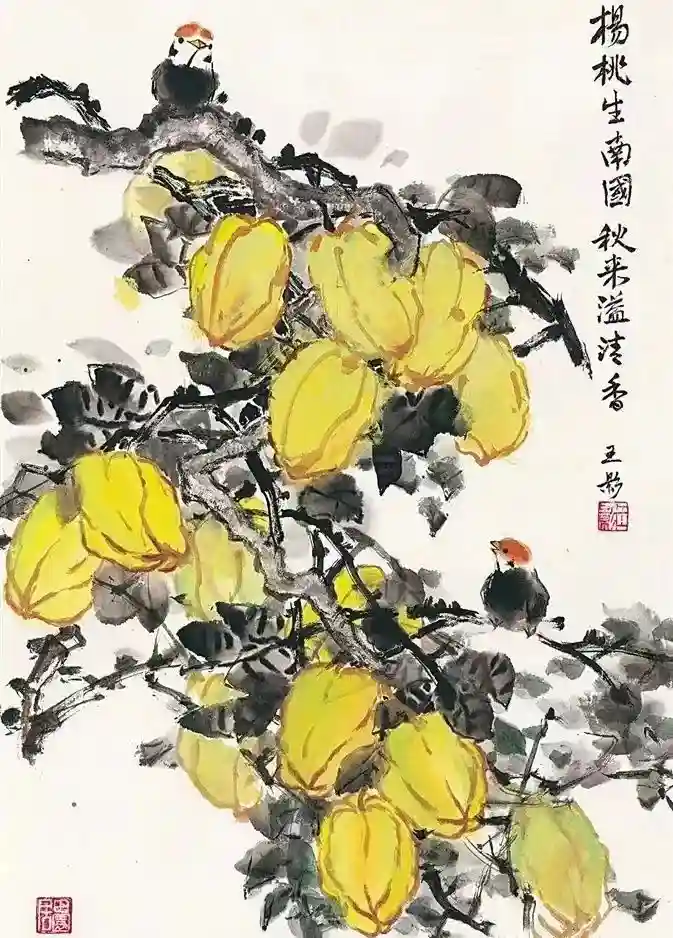 楊桃生南國秋来溢清香
王影